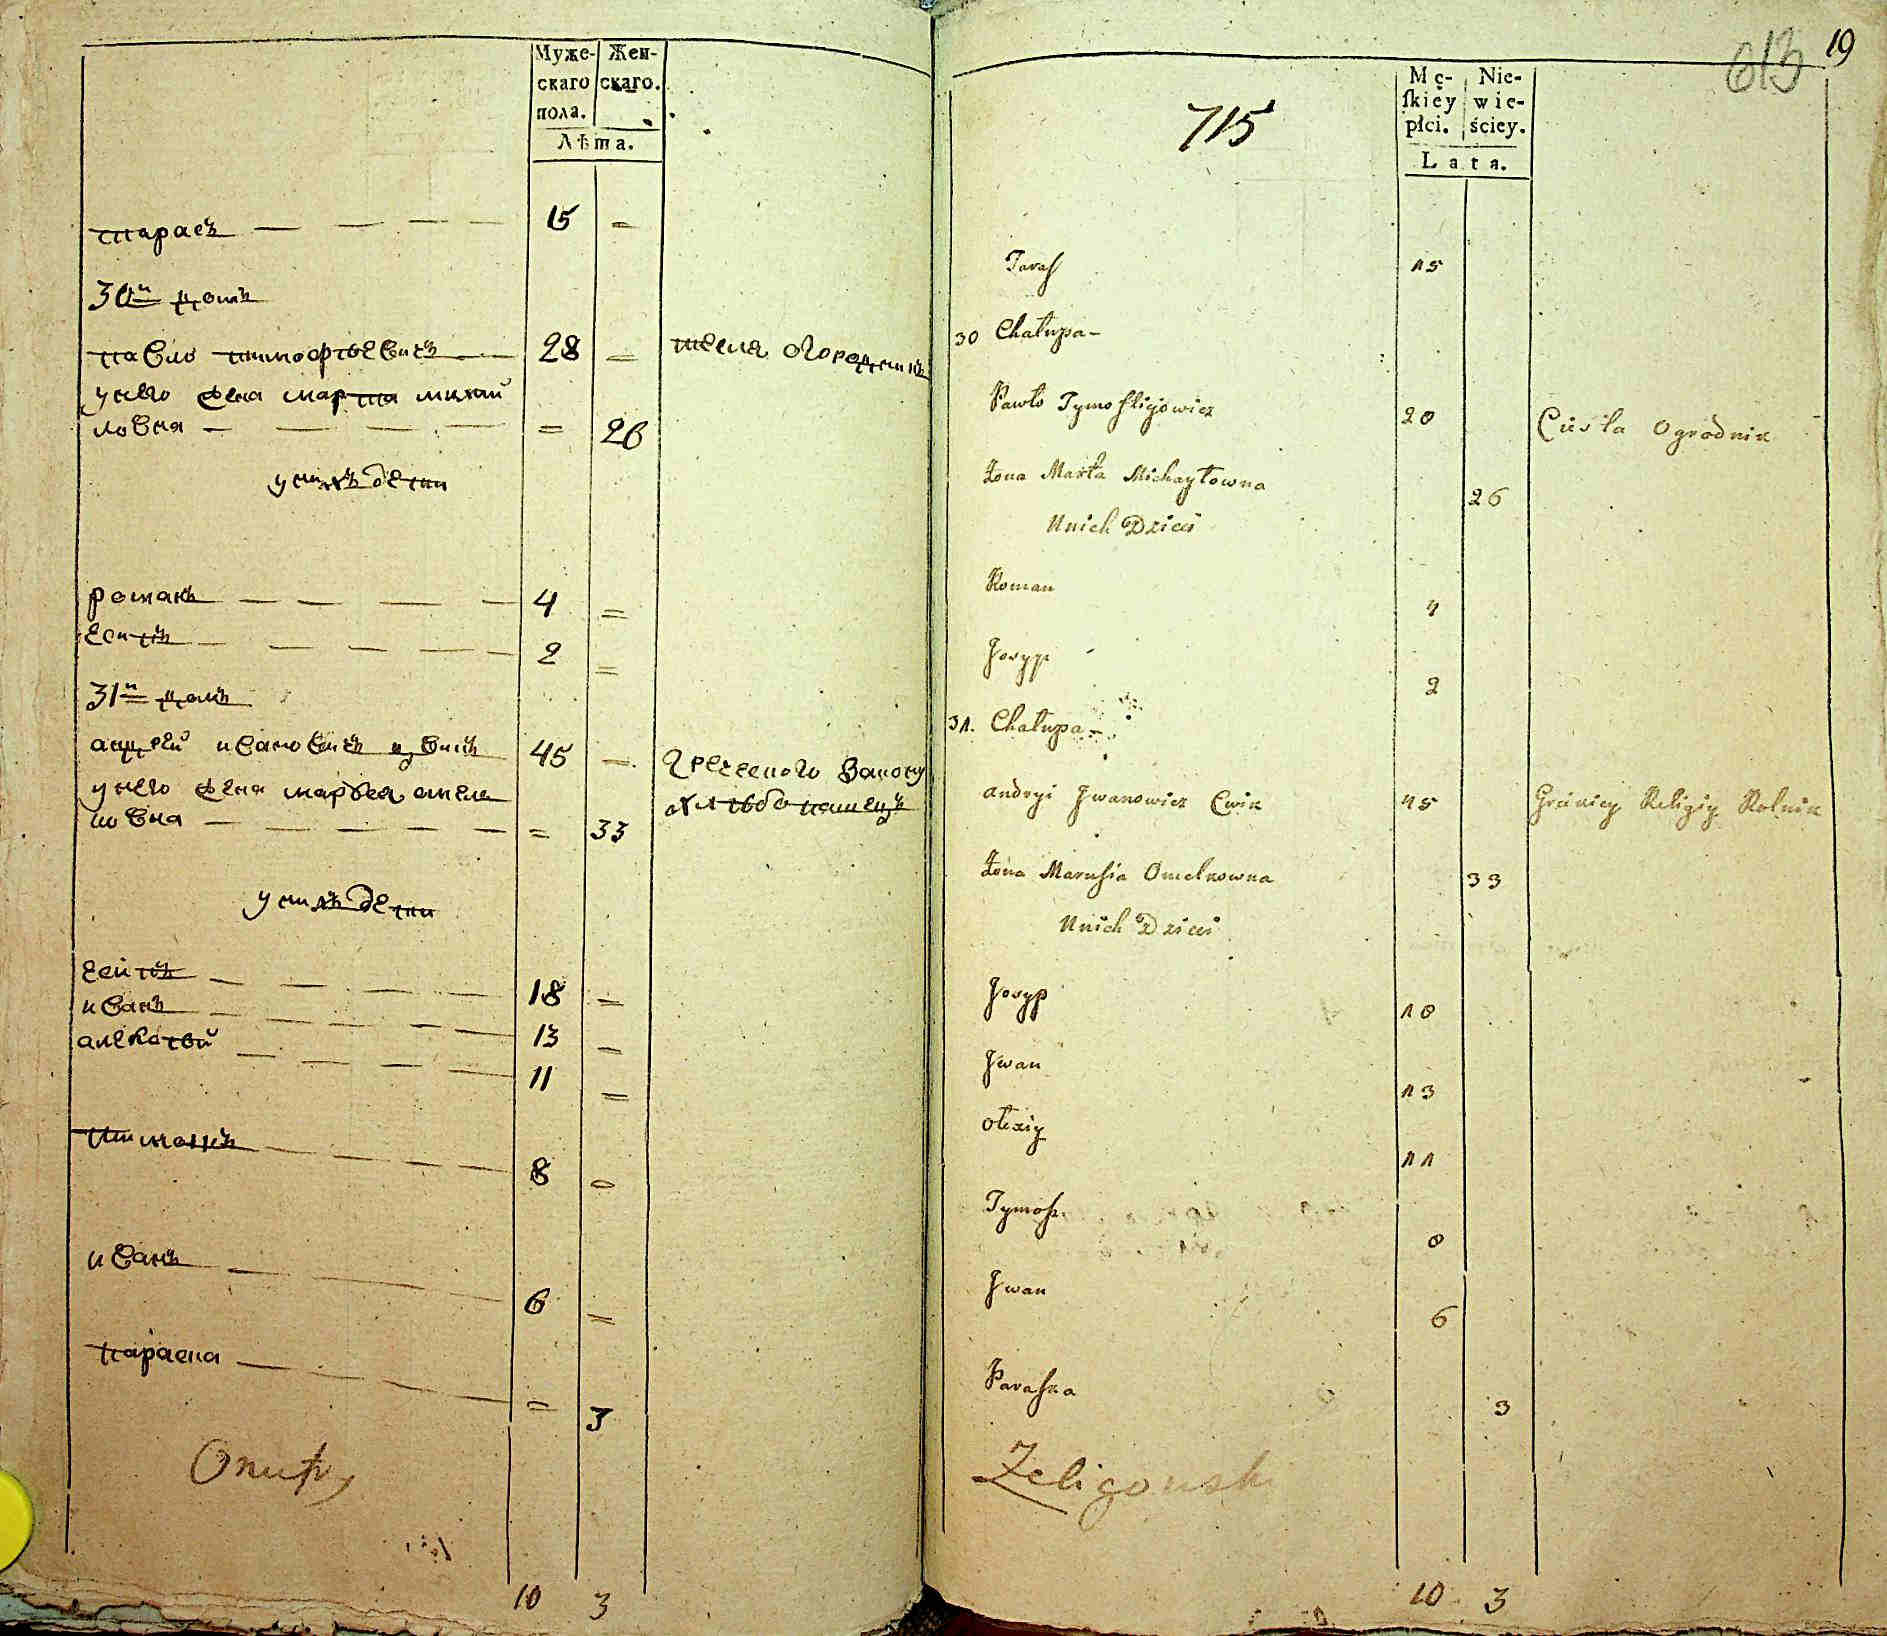 Муже- Жен-
скаго скаго.
пола.
Лѣта.
тарасъ 15 =
30й домъ
павло тимофѣевичъ 28 = тесля огородникъ
унего жена марта михай
ловна = 26
унихъ дети
романъ 4 =
есипъ 2 =
31й домъ
андрей ивановичъ цвикъ 45 = греческого закону
унего жена марья омель
новна = 33 хлѣбопашецъ
унихъ дети
есипъ 18 =
иванъ 13 =
алексѣй 11 =
8 =
иванъ 6 =
параска = 3
10 3
613 19
715
Mę- Nie-
ſkiey wie-
płci. ściey.
Lata.
Taraſ 15
30 Chałupa-
Pawło Tymoſzijowicz 28 Cieśla Ogrodnik
Żona Marta Michayłowna 26
Unich Dzieci
Roman 4
Josyp 2
31. Chałupa-
andryi Jwanowicz Cwik 45 Greckiey Religiy Rolnik
Żona Maruſia Omelkowna 33
Unich Dzieci
Josyp 18
Jwan 13
ołexiy 11
Tymoſz 8
Jwan 6
Paraſka 3
Zeligowski
10 3